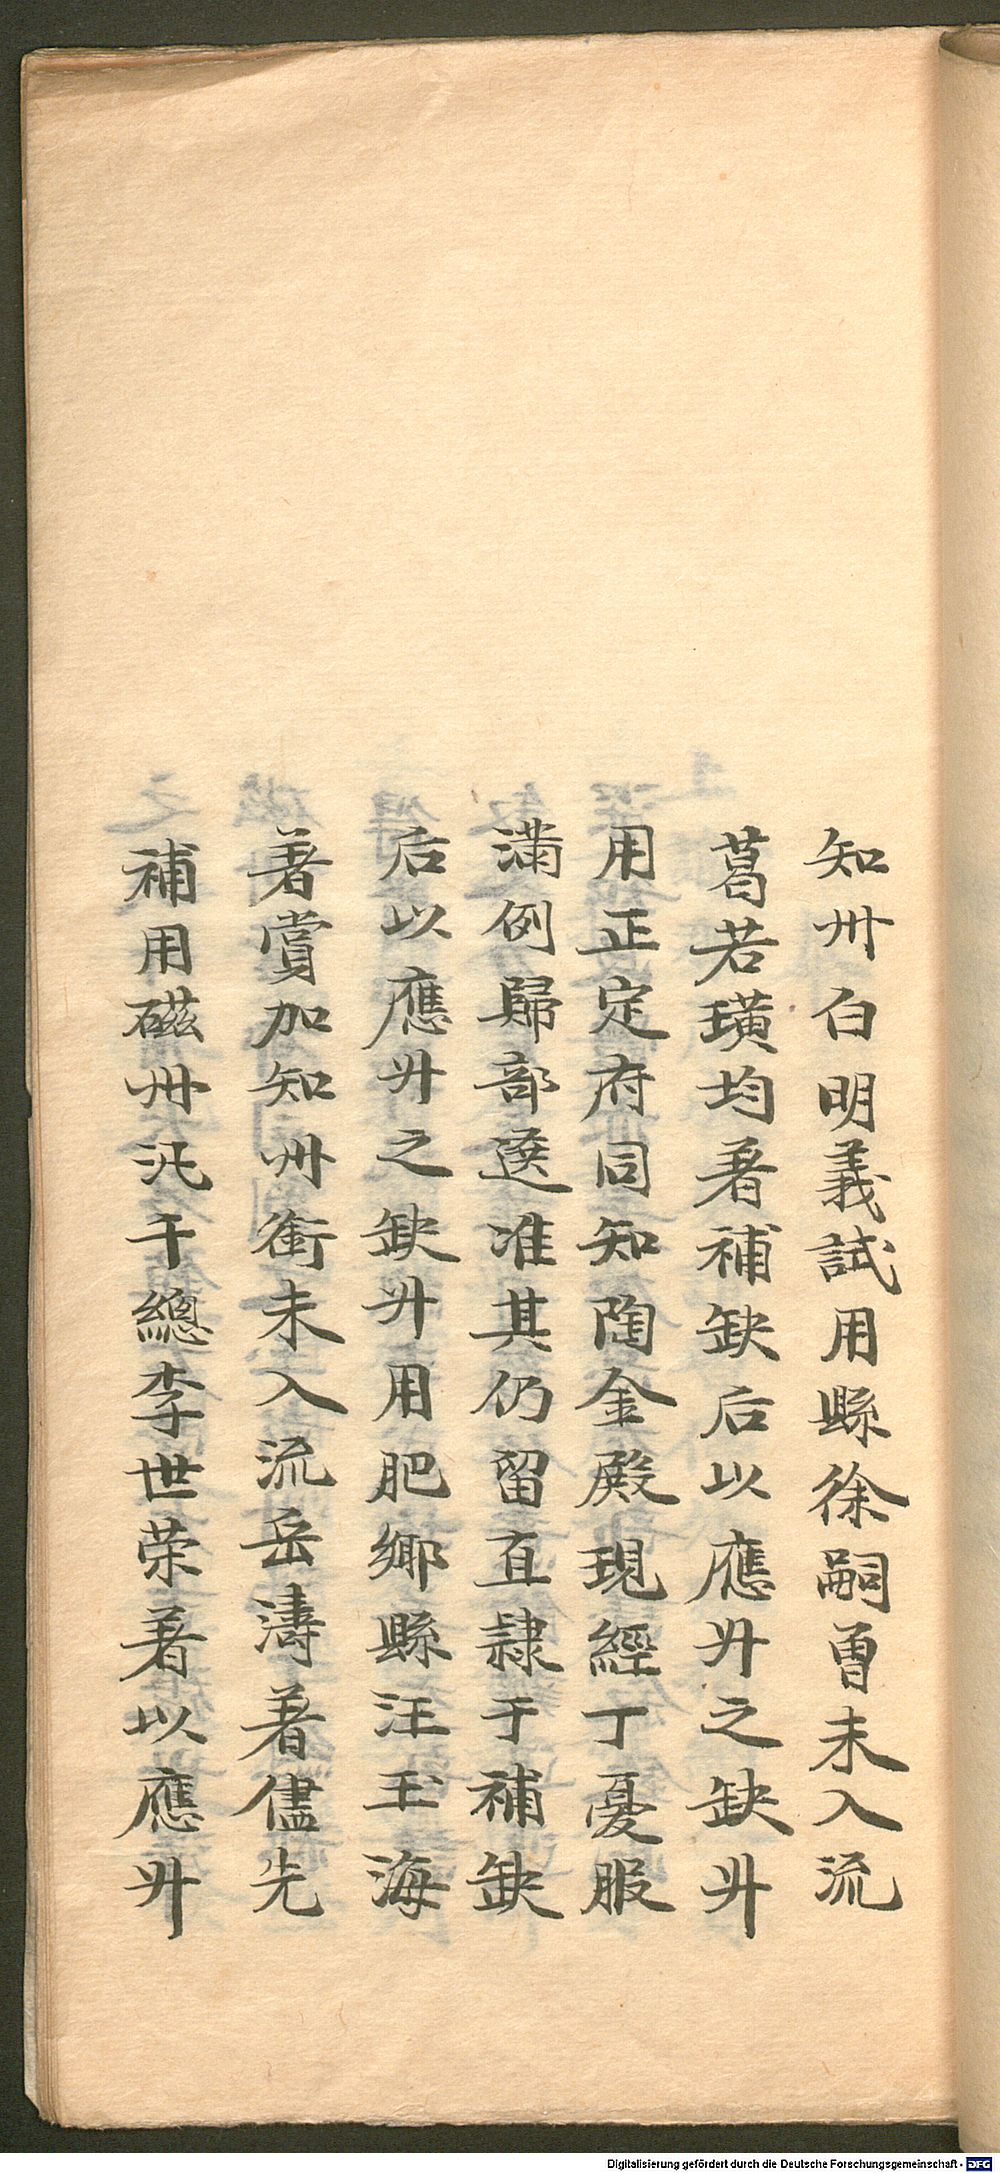 知州白明義試用縣徐嗣曾未入流
葛若璜均着補缺后以應升之缺升
用正定府同知陶金殿現經丁憂服
滿例歸部選准其仍留直隸于補缺
后以應升之缺升用肥鄉縣汪玉海
著賞加知州銜未入流岳濤着儘先
補用磁州汛千總李世荣着以應升
Digitalisierung gefördert durch die Deutsche Forschungsgemeinschaft - DFG